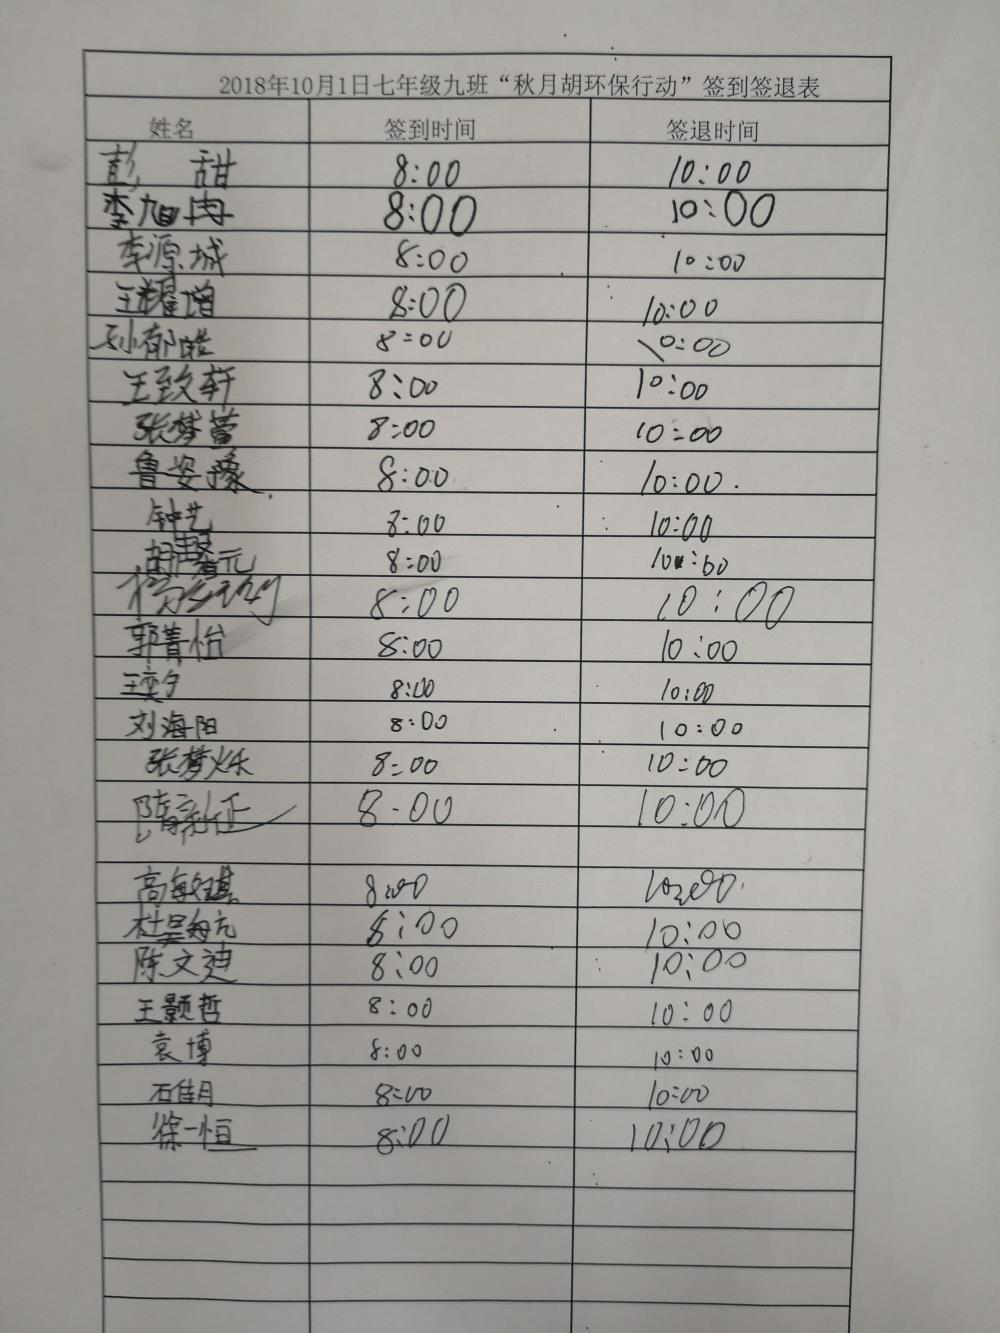 2018年10月1日七年级九班“秋月胡环保行动”签到签退表
姓名 签到时间 签退时间
彭甜 8:00 10:00
李旭冉 8:00 10:00
李源城 8:00 10:00
王耀增 8:00 10:00
孙郁皓 8:00 10:00
王致轩 8:00 10:00
张梦萱 8:00 10:00
鲁姿豫 8:00 10:00
钟艺 8:00 10:00
胡 元 8:00 10:00
8:00 10:00
郭菁怡 8:00 10:00
王奕夕 8:00 10:00
刘海阳 8:00 10:00
张梦烁 8:00 10:00
隋新征 8:00 10:00
高 8:00 10:00
杜昊 8:00 10:00
陈文迪 8:00 10:00
王颢哲 8:00 10:00
袁博 8:00 10:00
石佳月 8:00 10:00
徐一恒 8:00 10:00